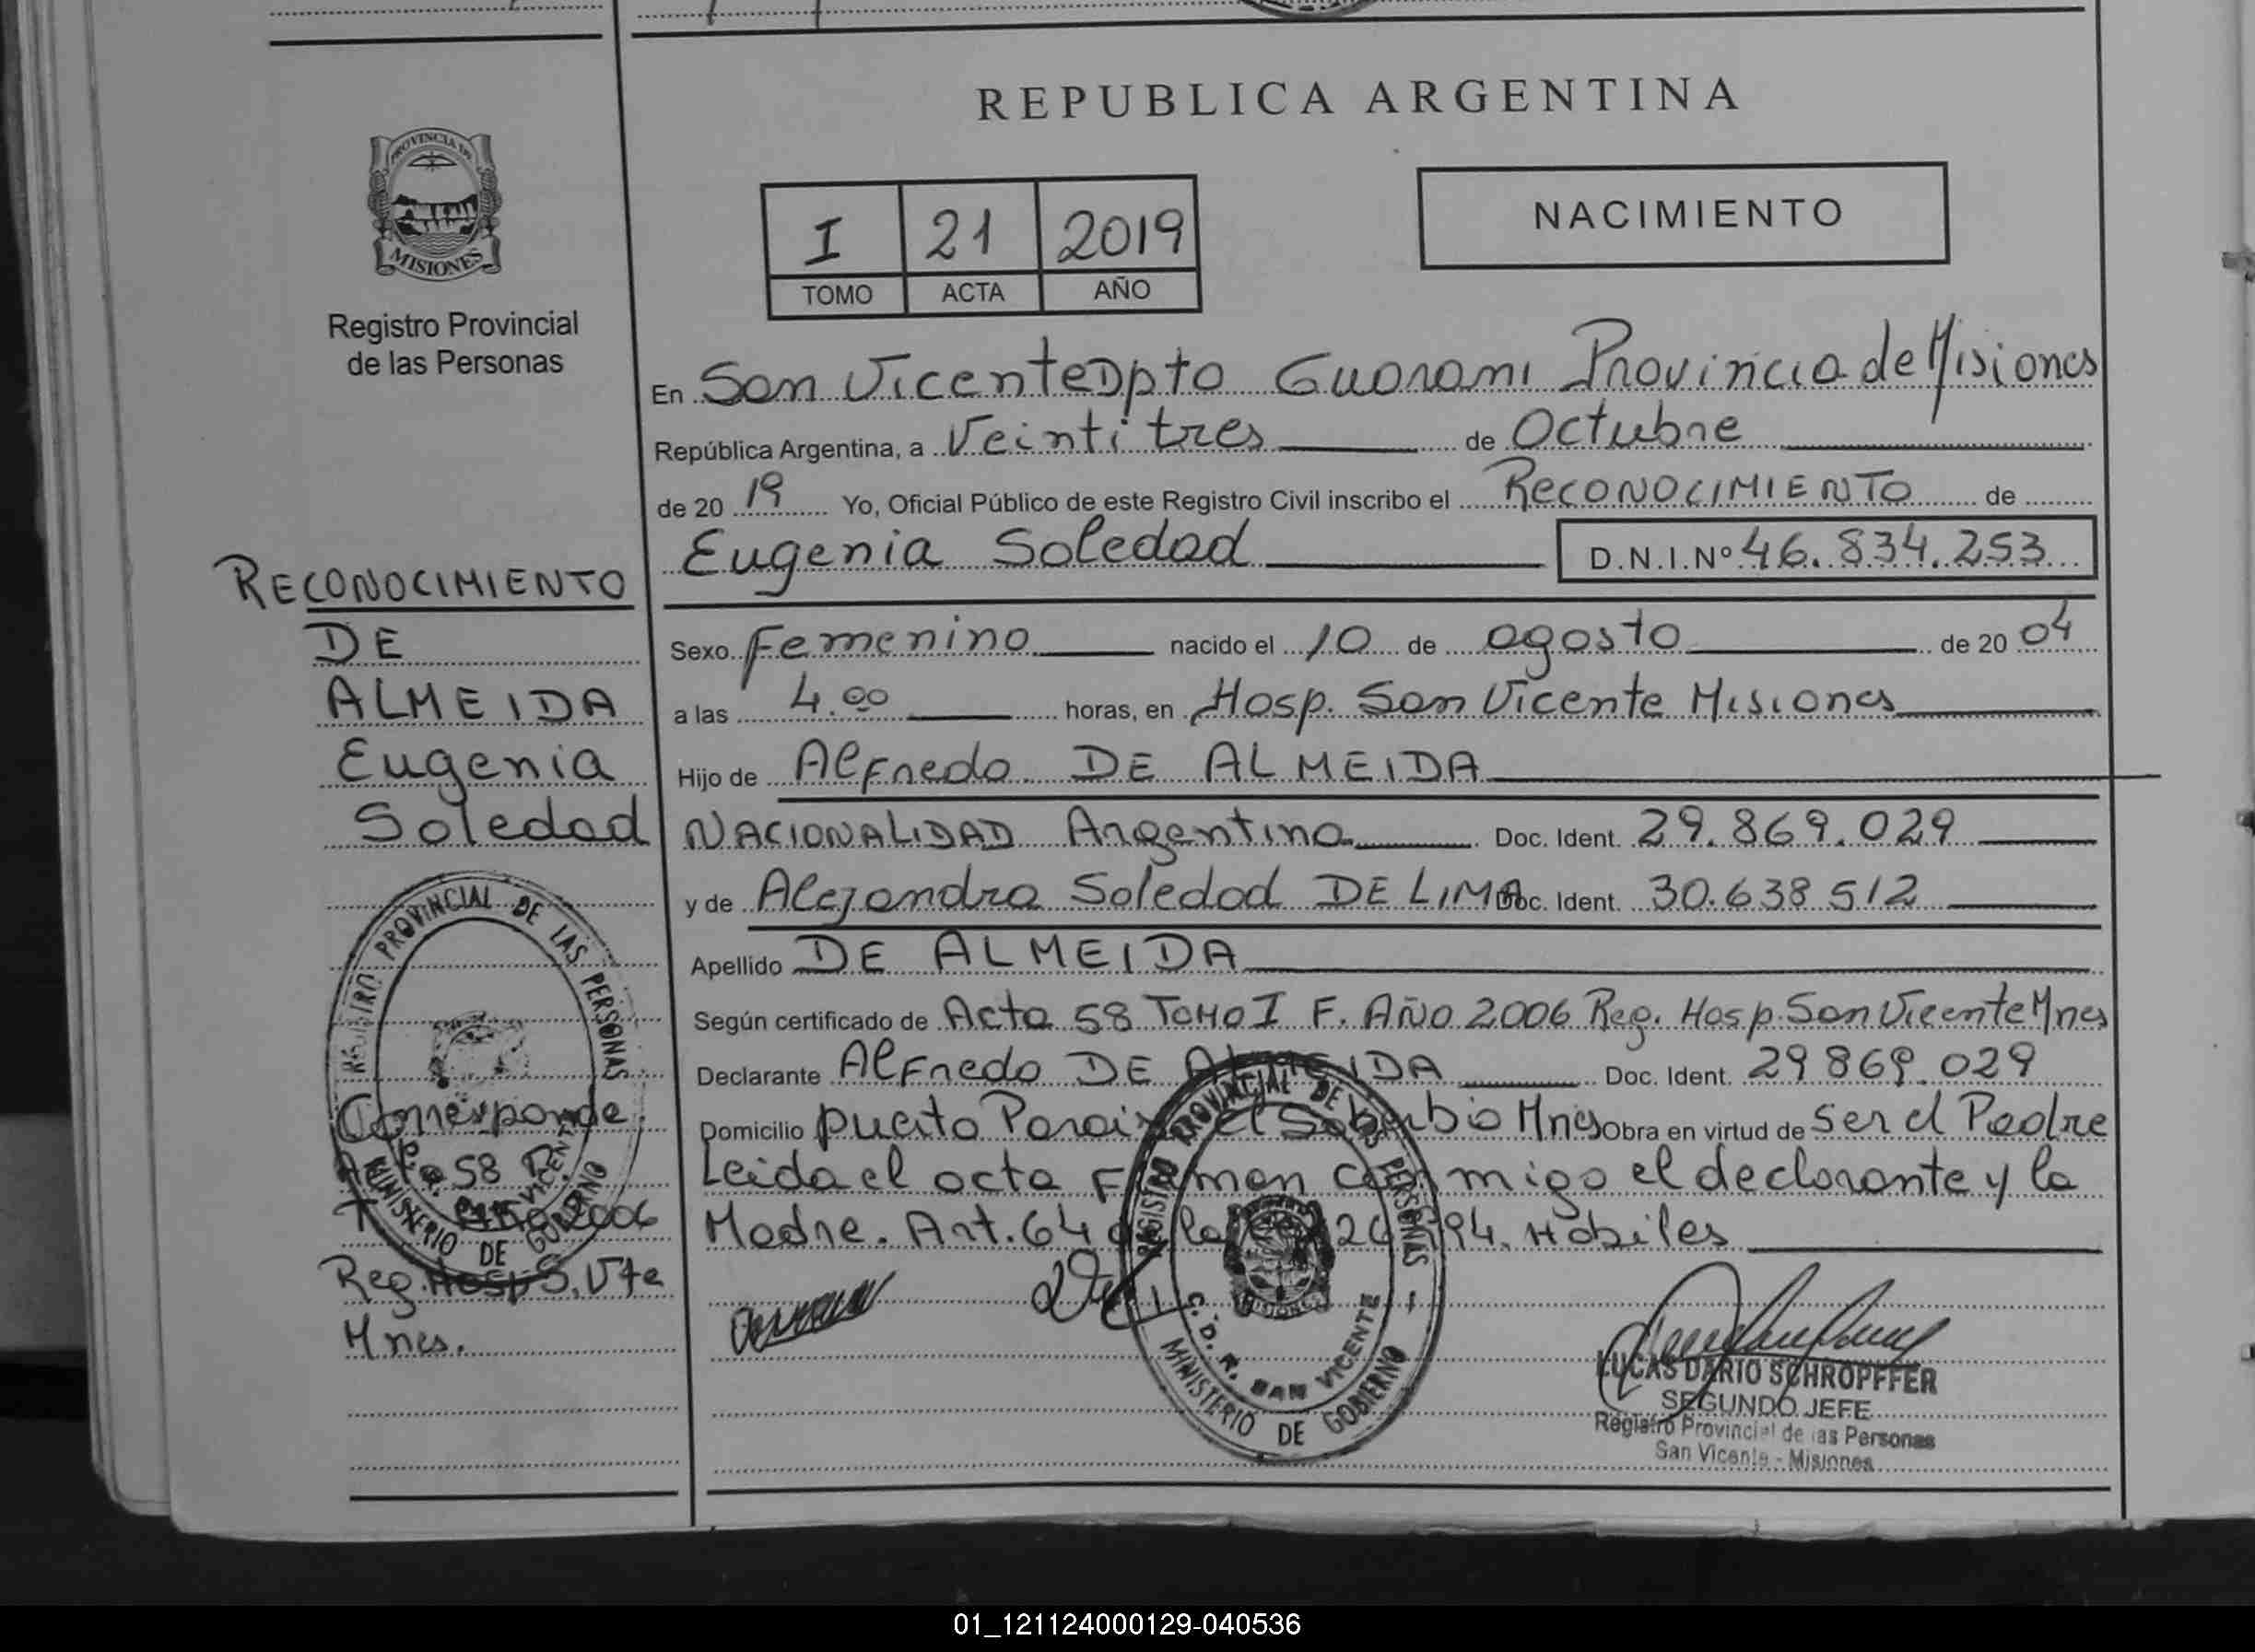 REPUBLICA ARGENTINA
PROVINCIA DE
MISIONES
Registro Provincial
de las Personas
I 21 2019
TOMO ACTA AÑO
NACIMIENTO
En San Vicente Dpto Guarani Provincia de Misiones
República Argentina, a Veintitres de Octubre
de 20 19 Yo, Oficial Público de este Registro Civil inscribo el RECONOCIMIENTO de
Eugenia Soledad D.N.I.Nº 46.834.253
Sexo Femenino nacido el 10 de agosto de 20 04
a las 4.00 horas, en Hosp. San Vicente Misiones
Hijo de Alfredo DE ALMEIDA
NACIONALIDAD Argentina Doc. Ident. 29.869.029
y de Alejandra Soledad DE LIMA Doc. Ident. 30.638 512
Apellido DE ALMEIDA
Según certificado de Acta 58 TOMO I F. AÑO 2006 Reg. Hosp. San Vicente Mnes
Declarante Alfredo DE ALMEIDA Doc. Ident. 29 869.029
Domicilio puerto Parai el Soberbio Mnes Obra en virtud de Ser el Padre
Leida el acta Firman conmigo el declarante y la
Madre. Art. 64 de la Ley 26 994. Habiles
RECONOCIMIENTO
DE
ALMEIDA
Eugenia
Soledad
REGISTRO PROVINCIAL DE LAS PERSONAS
MINISTERIO DE GOBIERNO
Corresponde
Acta 58
T Año 2006
Reg. Hosp S. Vte
Mnes.
REGISTRO PROVINCIAL DE LAS PERSONAS
C.D.R. SAN VICENTE
MISIONES
MINISTERIO DE GOBIERNO
LUCAS DARIO SCHROPFFER
SEGUNDO JEFE
Registro Provincial de las Personas
San Vicente - Misiones
01_121124000129-040536